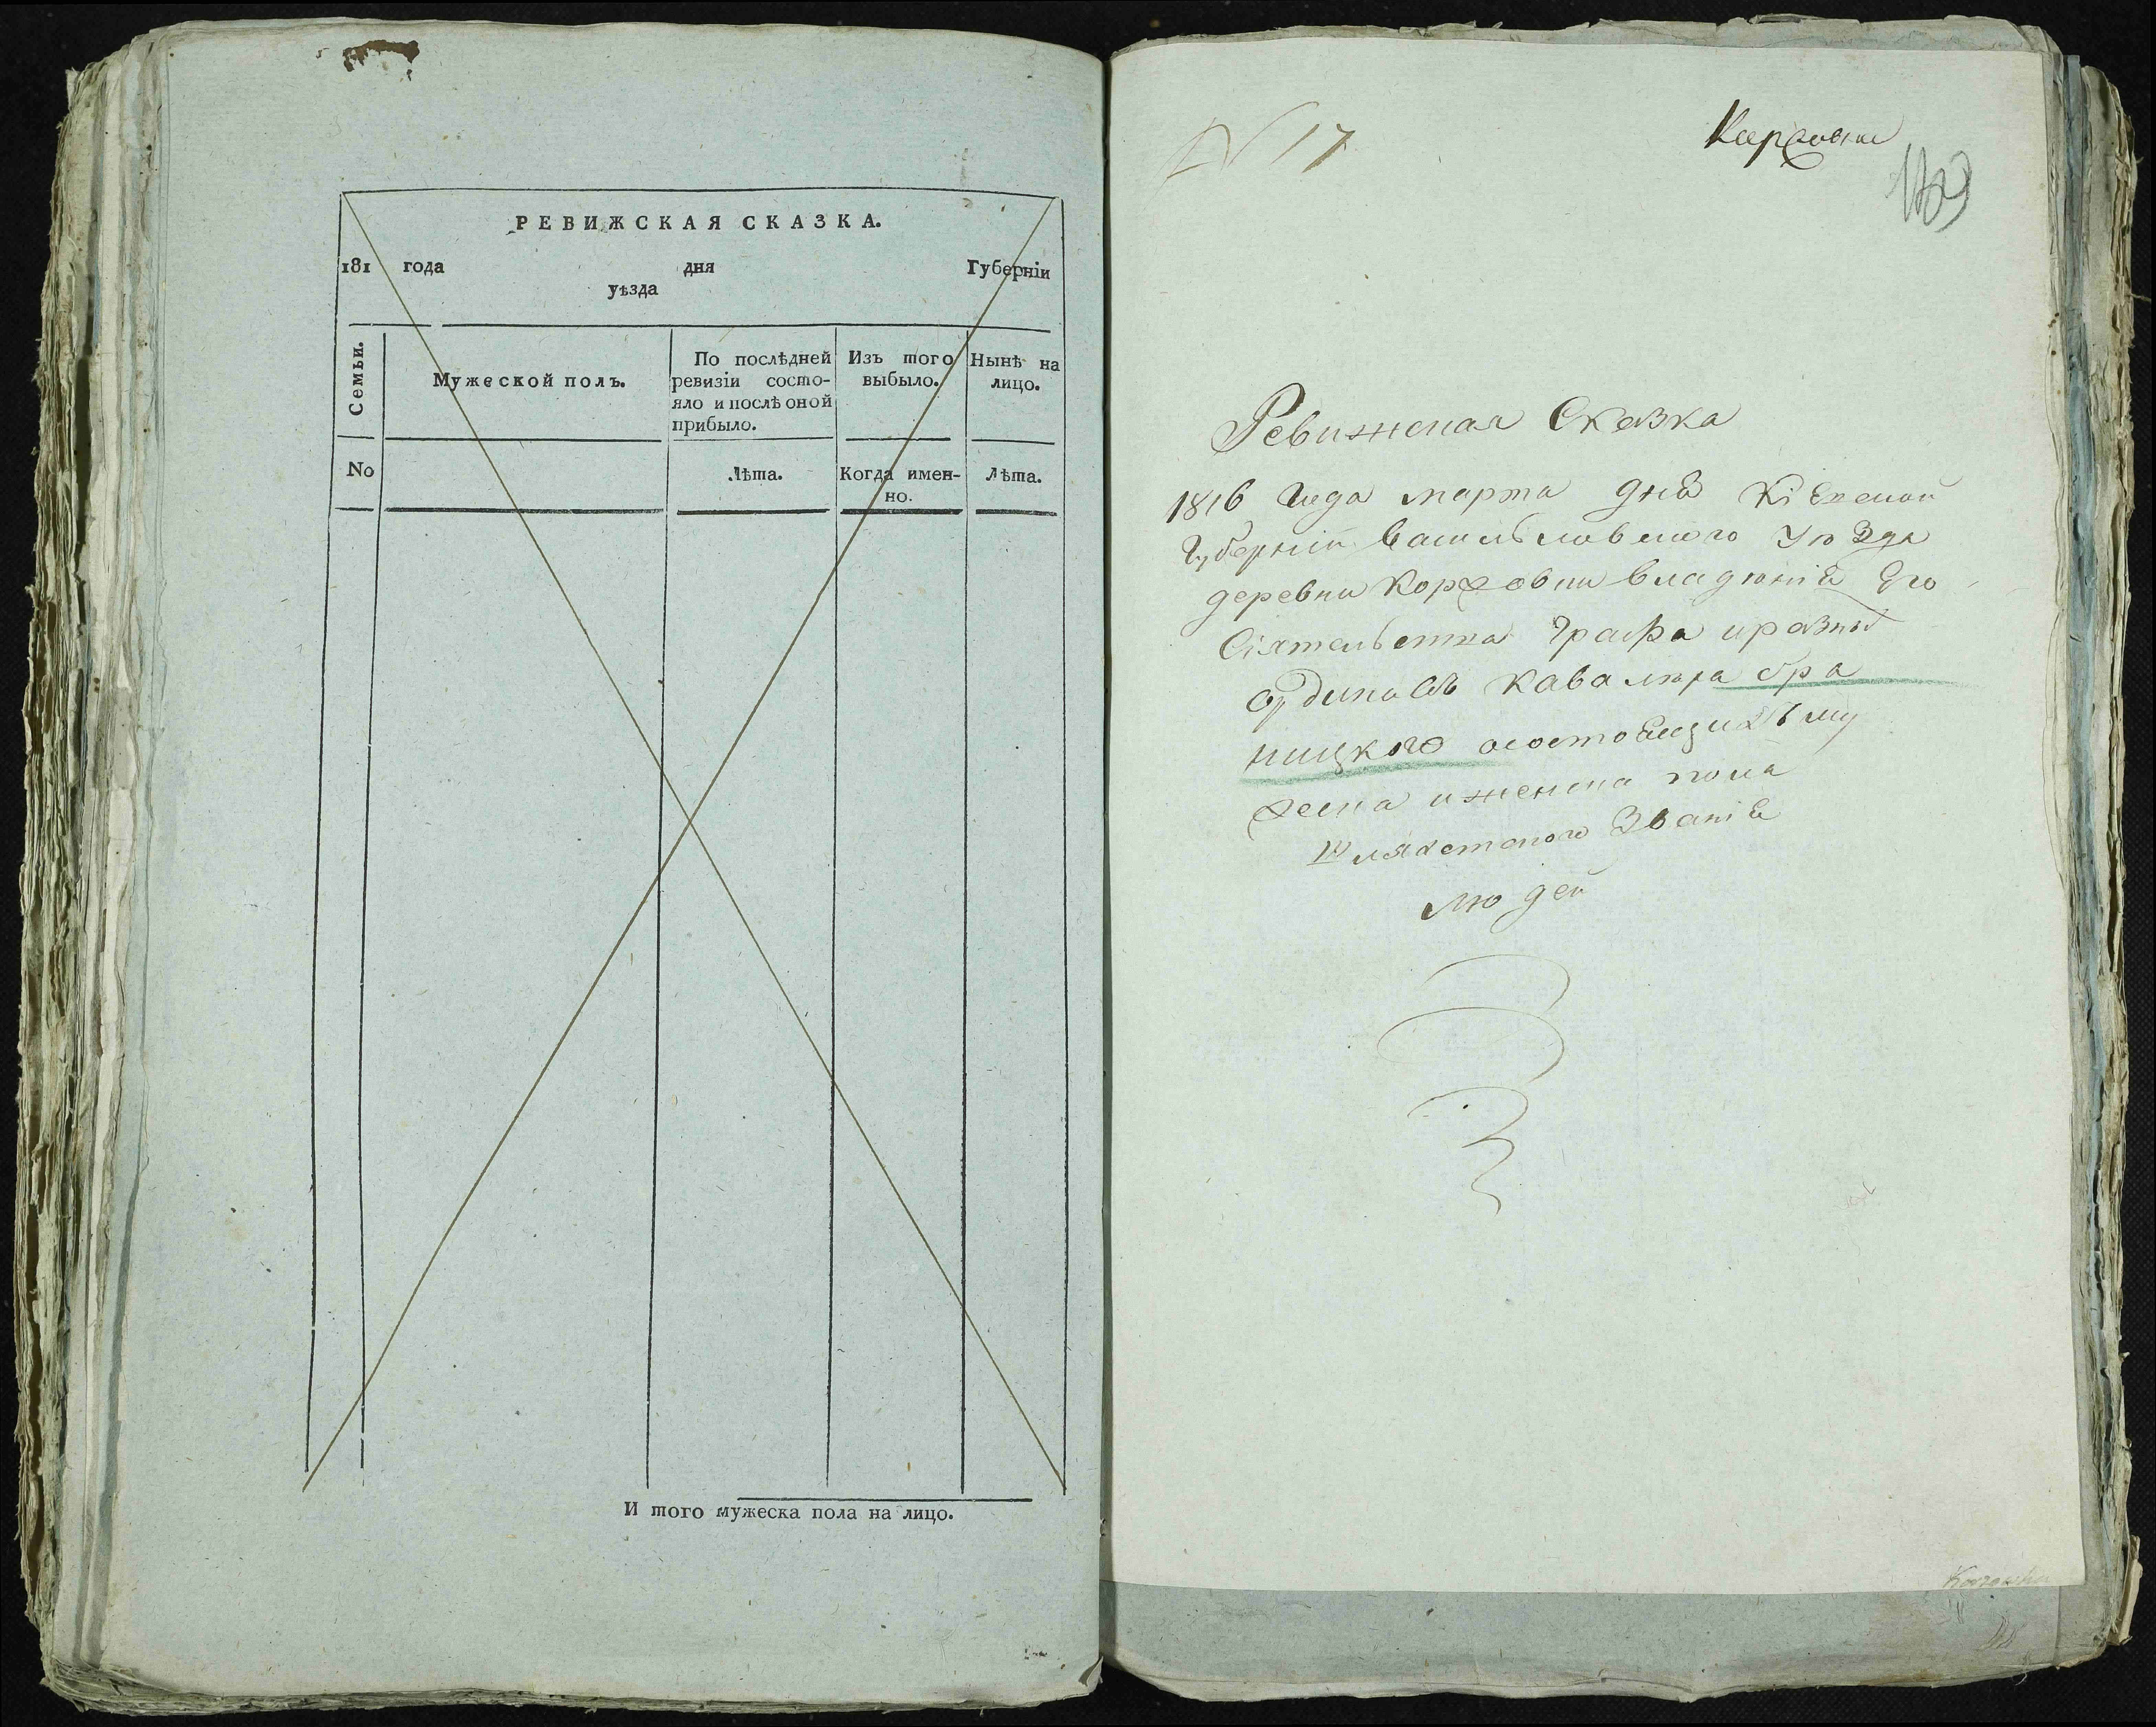 РЕВИЖСКАЯ СКАЗКА.
181 года дня Губерніи
уѣзда
Семьи.
Мужеской полъ.
По послѣдней ревизіи состо-
яло и послѣ оной
прибыло.
Изъ того
выбыло.
Нынѣ на
лицо.
No
Лѣта.
Когда имен-
но.
Лѣта.
И того мужеска пола на лицо.
N 17
Карховки
Ревижская Сказка
1816 Года марта дня Кіевской
Губерніи Васильковского Уюзда
деревни Корховки владюнія Его
Сіятельства Графа и разныхъ
Ординовъ Кавалюра бра
ницкого осостоящихъ му
жеска и женска пола
Шляхетского Званія
людей